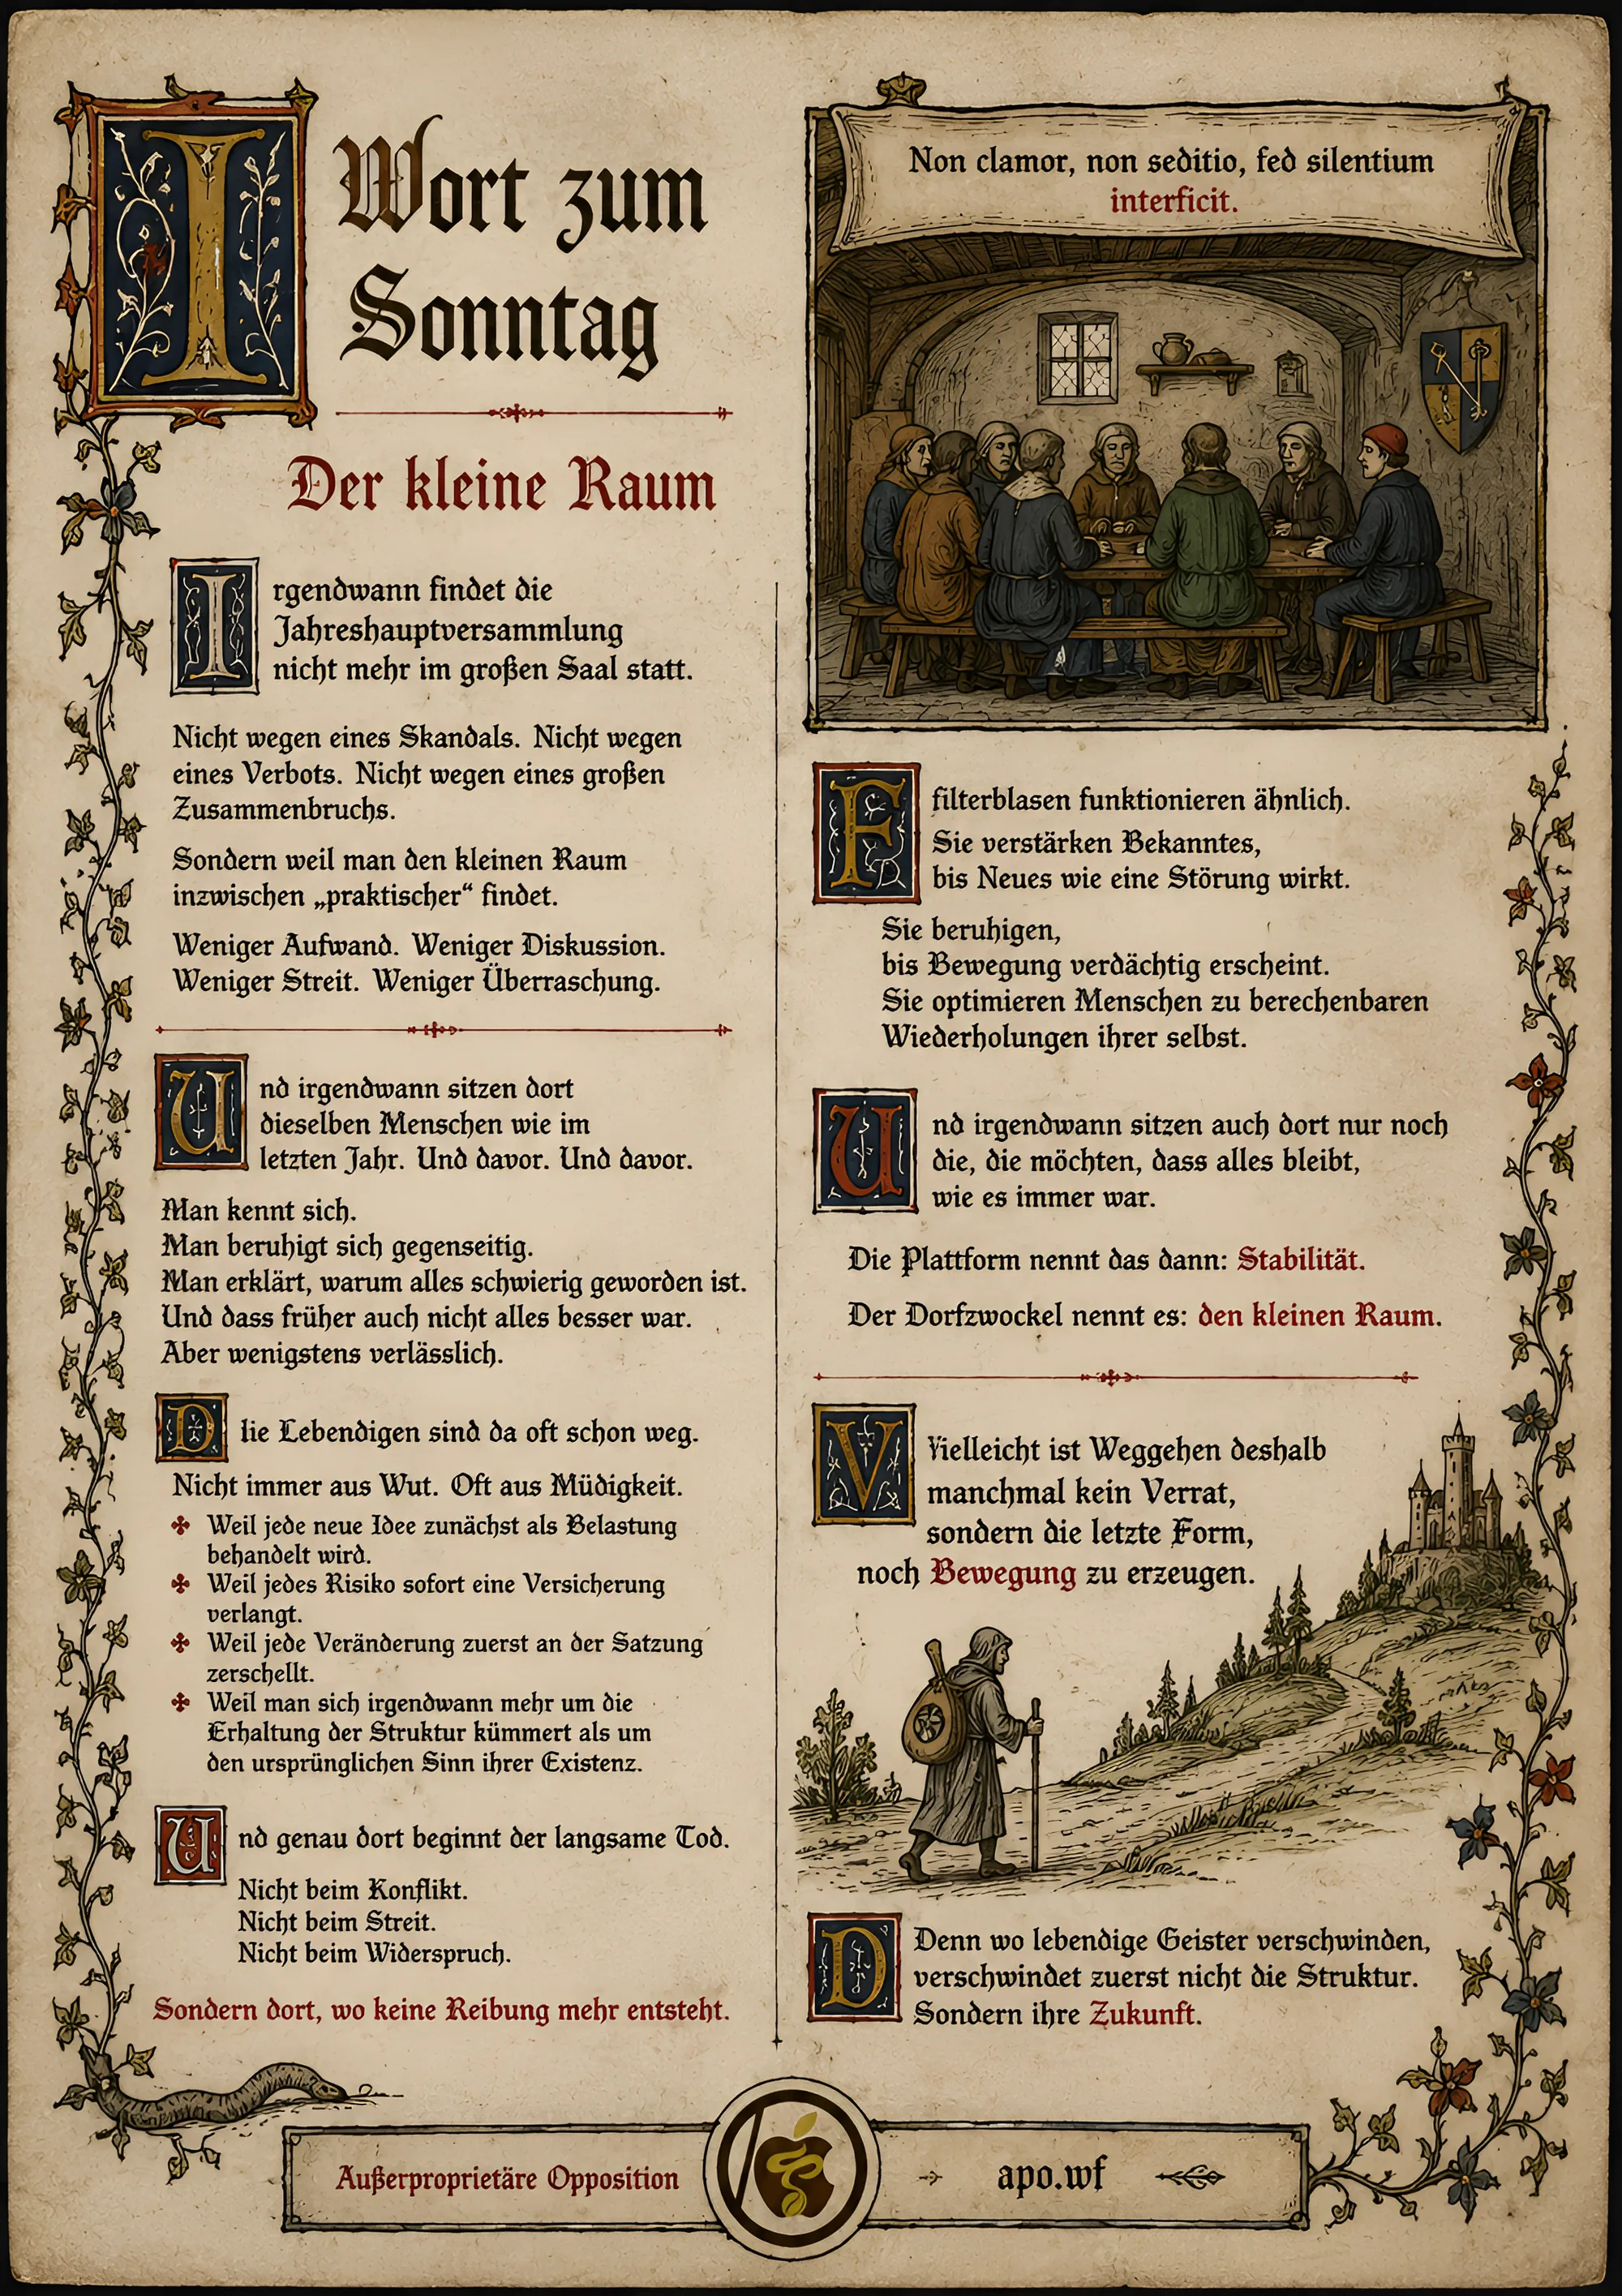 I
Wort zum
Sonntag
Der kleine Raum
Irgendwann findet die
Jahreshauptversammlung
nicht mehr im großen Saal statt.
Nicht wegen eines Skandals. Nicht wegen
eines Verbots. Nicht wegen eines großen
Zusammenbruchs.
Sondern weil man den kleinen Raum
inzwischen „praktischer“ findet.
Weniger Aufwand. Weniger Diskussion.
Weniger Streit. Weniger Überraschung.
Und irgendwann sitzen dort
dieselben Menschen wie im
letzten Jahr. Und davor. Und davor.
Man kennt sich.
Man beruhigt sich gegenseitig.
Man erklärt, warum alles schwierig geworden ist.
Und dass früher auch nicht alles besser war.
Aber wenigstens verlässlich.
D lie Lebendigen sind da oft schon weg.
Nicht immer aus Wut. Oft aus Müdigkeit.
✤ Weil jede neue Idee zunächst als Belastung
behandelt wird.
✤ Weil jedes Risiko sofort eine Versicherung
verlangt.
✤ Weil jede Veränderung zuerst an der Satzung
zerschellt.
✤ Weil man sich irgendwann mehr um die
Erhaltung der Struktur kümmert als um
den ursprünglichen Sinn ihrer Existenz.
Und genau dort beginnt der langsame Tod.
Nicht beim Konflikt.
Nicht beim Streit.
Nicht beim Widerspruch.
Sondern dort, wo keine Reibung mehr entsteht.
Non clamor, non seditio, fed silentium
interficit.
F filterblasen funktionieren ähnlich.
Sie verstärken Bekanntes,
bis Neues wie eine Störung wirkt.
Sie beruhigen,
bis Bewegung verdächtig erscheint.
Sie optimieren Menschen zu berechenbaren
Wiederholungen ihrer selbst.
Und irgendwann sitzen auch dort nur noch
die, die möchten, dass alles bleibt,
wie es immer war.
Die Plattform nennt das dann: Stabilität.
Der Dorfzwockel nennt es: den kleinen Raum.
V Vielleicht ist Weggehen deshalb
manchmal kein Verrat,
sondern die letzte Form,
noch Bewegung zu erzeugen.
D Denn wo lebendige Geister verschwinden,
verschwindet zuerst nicht die Struktur.
Sondern ihre Zukunft.
Außerproprietäre Opposition
apo.wf